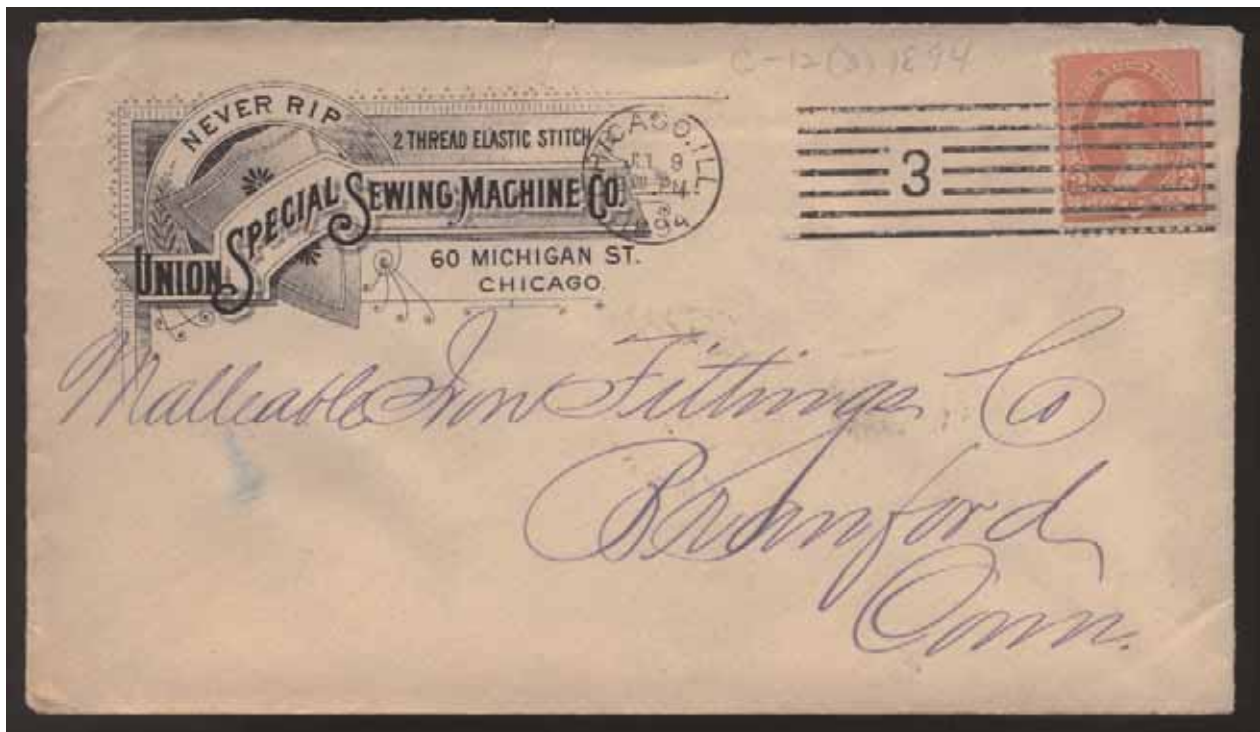 C-12(3) 1894
NEVER RIP
2 THREAD ELASTIC STITCH
UNION SPECIAL SEWING MACHINE CO.
60 MICHIGAN ST.
CHICAGO.
CHICAGO, ILL.
9
PM
94
3
Malleable Iron Fittings Co
Branford
Conn.